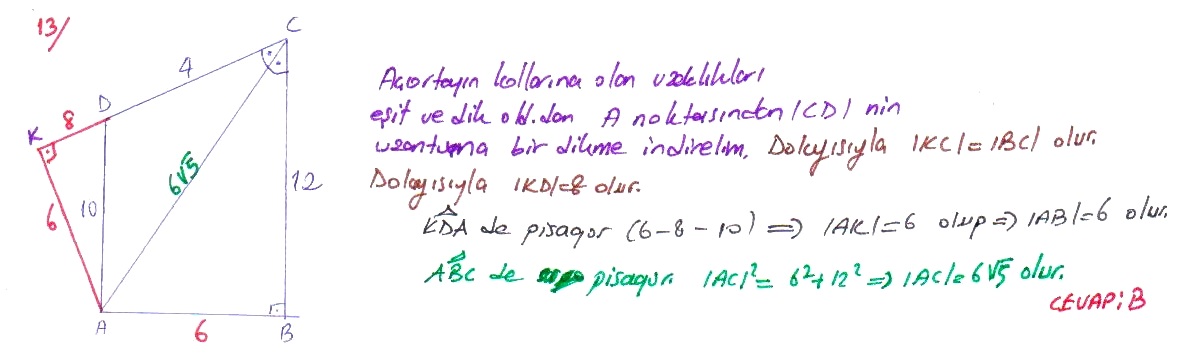 13/
C
4
D
8
K
6√5
12
6
10
A
6
B
Açıortayın kollarına olan uzaklıkları
eşit ve dik old.dan A noktasından |CD| nin
uzantısına bir dikme indirelim. Dolayısıyla |KC|=|BC| olur.
Dolayısıyla |KD|=8 olur.
KDA de pisagor (6-8-10) ⇒ |AK|=6 olup ⇒ |AB|=6 olur.
ABC de pisagor. |AC|² = 6²+12² ⇒ |AC|=6√5 olur.
CEVAP: B